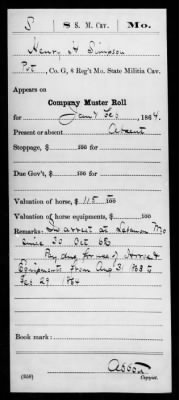 S 8 S. M. Cav. Mo.
Henry H Simpson
Pvt, Co. G, 8 Reg't Mo. State Militia Cav.
Appears on
Company Muster Roll
for Jan & Feb, 1864.
Present or absent Absent
Stoppage, $ 100 for
Due Gov't, $ 100 for
Valuation of horse, $ 115 100
Valuation of horse equipments, $ 100
Remarks: In arrest at Lebanon Mo
since 30 Oct 63
Pay due for use of Horse &
Equipments from Aug 31 1863 to
Feb 29 1864
Book mark:
(858) Copyist.